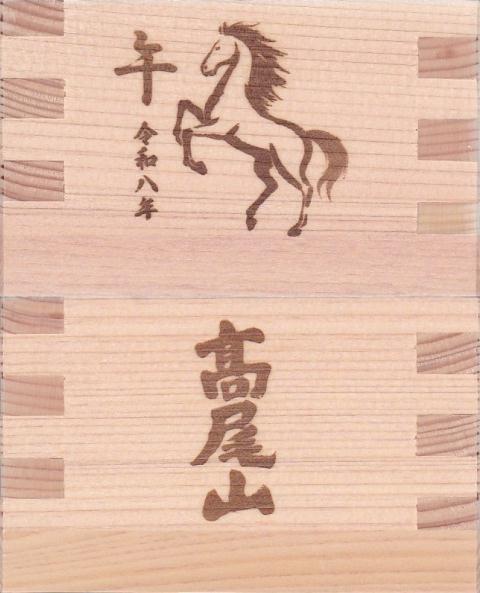 午
令和八年
髙尾山